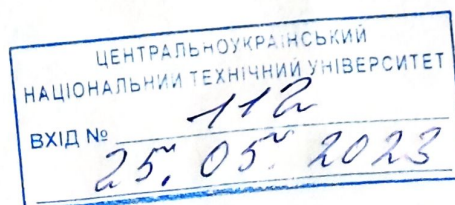 ЦЕНТРАЛЬНОУКРАЇНСЬКИЙ
НАЦІОНАЛЬНИЙ ТЕХНІЧНИЙ УНІВЕРСИТЕТ
ВХІД № 112
25. 05. 2023